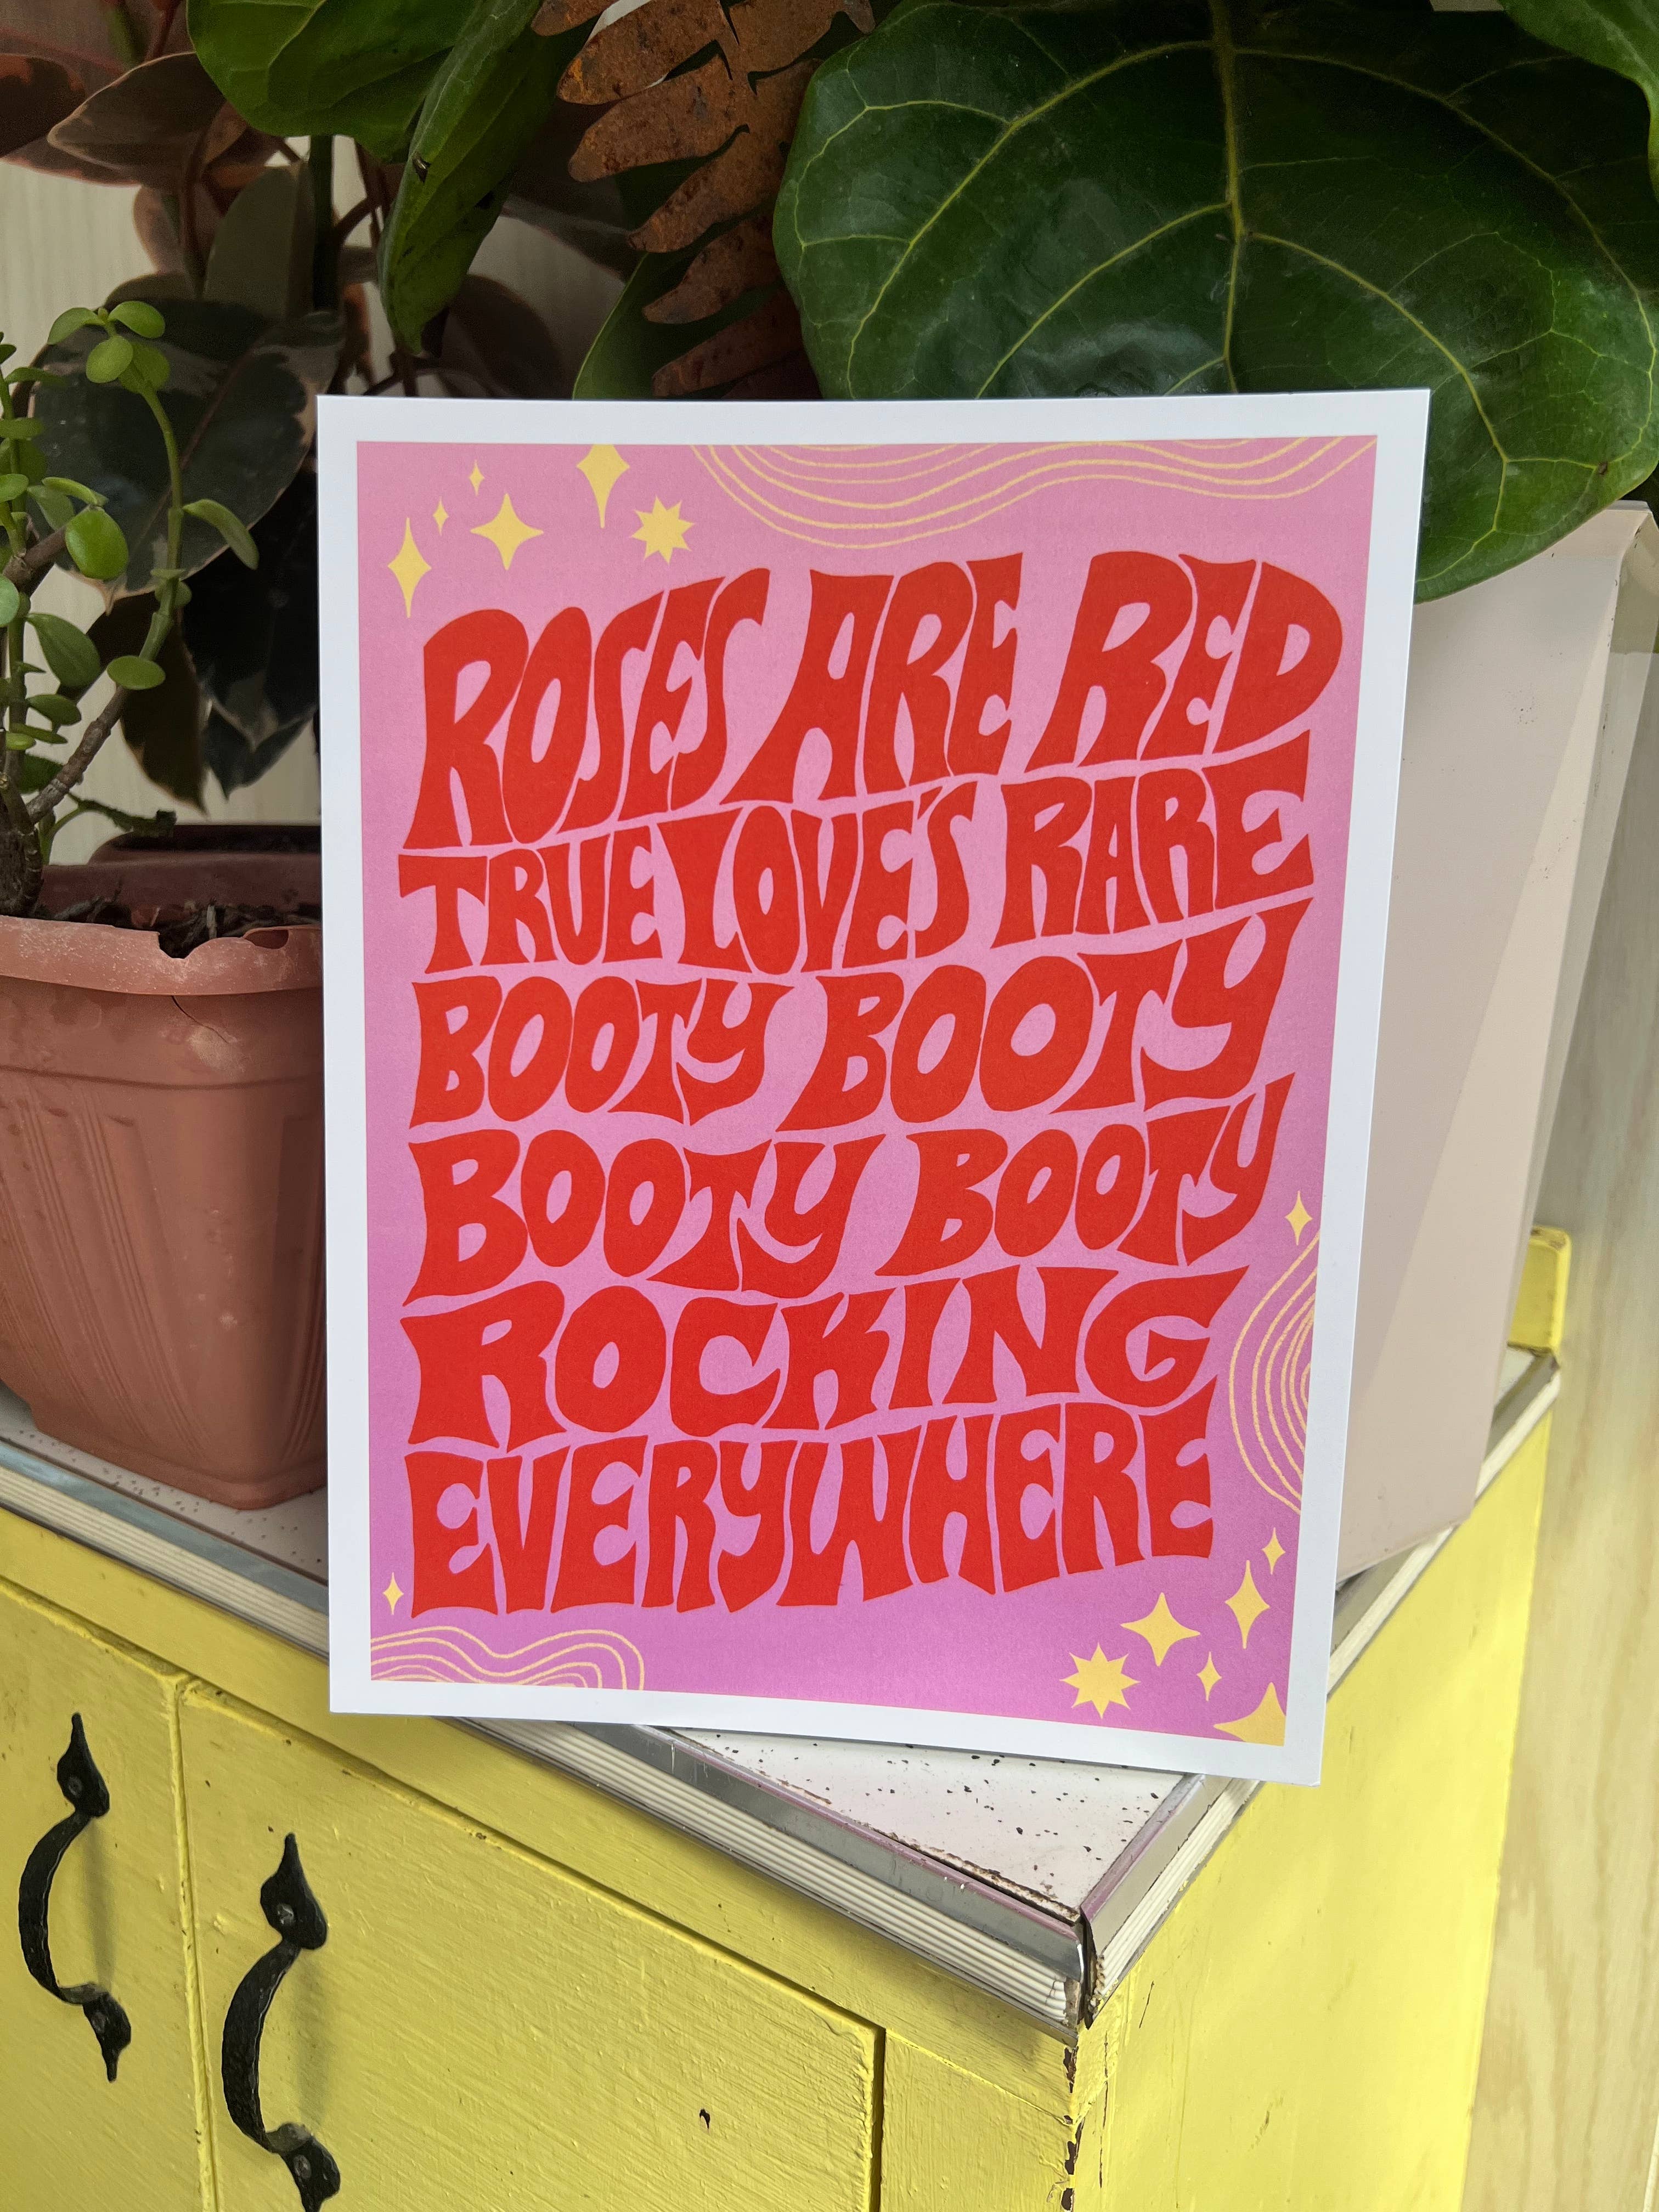 ROSES ARE RED
TRUE LOVE'S RARE
BOOTY BOOTY
BOOTY BOOTY
ROCKING
EVERYWHERE